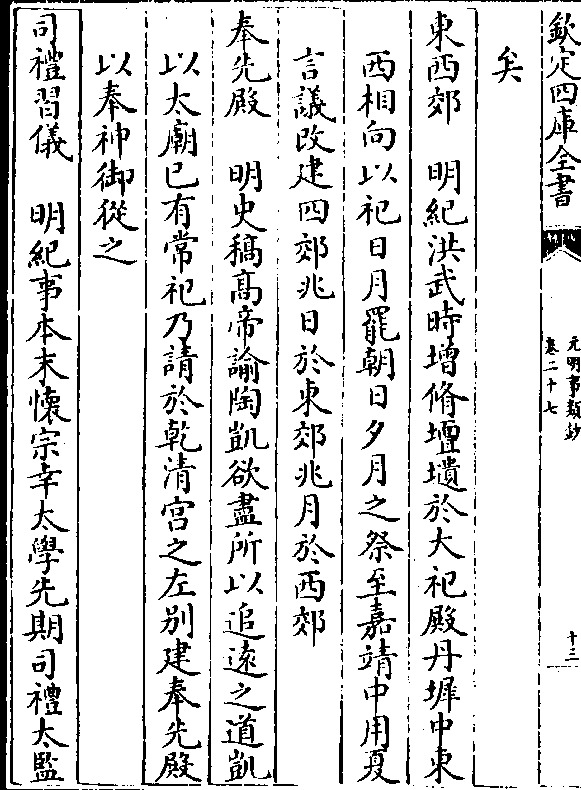 欽定四庫全書
元明事類鈔
卷二十七
十三
矣
東西郊　明紀洪武時增脩壇壝於大祀殿丹墀中東
西相向以祀日月罷朝日夕月之祭至嘉靖中用夏
言議改建四郊兆日於東郊兆月於西郊
奉先殿　明史稿髙帝諭陶凱欲盡所以追遠之道凱
以太廟已有常祀乃請於乾清宫之左别建奉先殿
以奉神御從之
司禮習儀　明紀事本末懷宗幸太學先期司禮太監